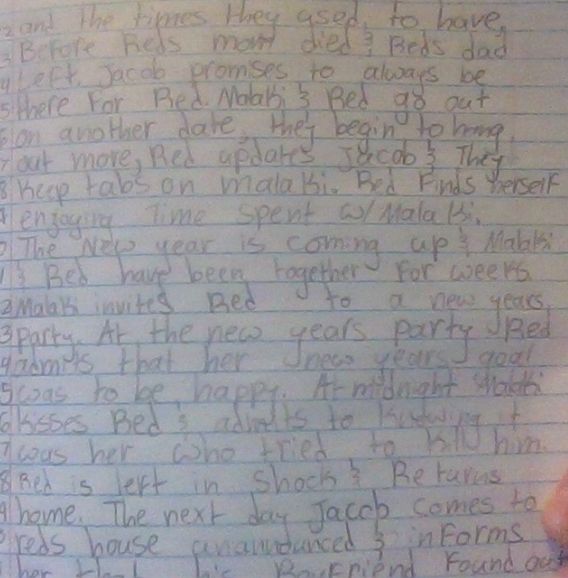 2 and the times they used, to have,
3 Before Reds mom died & Reds dad
4 left. Jacob promises to always be
5 there For Red. Malaki & Red go out
6 on another date, they begin to hang
7 out more, Red updates Jacob & They
8 Keep tabs on malaki. Red Finds herself
9 engaging Time spent w/ Malaki.
0 The New year is coming up & Malaki
1 & Red have been together For weeks
2 Malaki invites Red to a new years
3 party. At the new years party Red
4 admits that her new years goal
5 was to be happy. At midnight Malaki
6 Kisses Red & admits to knowing it
7 was her who tried to kill him.
8 Red is left in Shock & Returns
9 home. The next day Jacob comes to
0 reds house unannounced & informs
1 her that his Boyfriend Found out